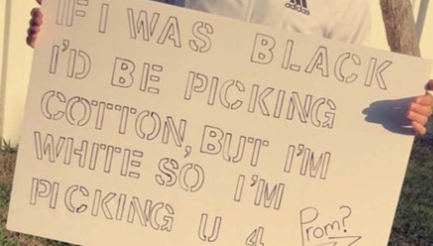 adidas
IF I WAS BLACK
I'D BE PICKING
COTTON, BUT I'M
WHITE SO I'M
PICKING U 4
Prom?